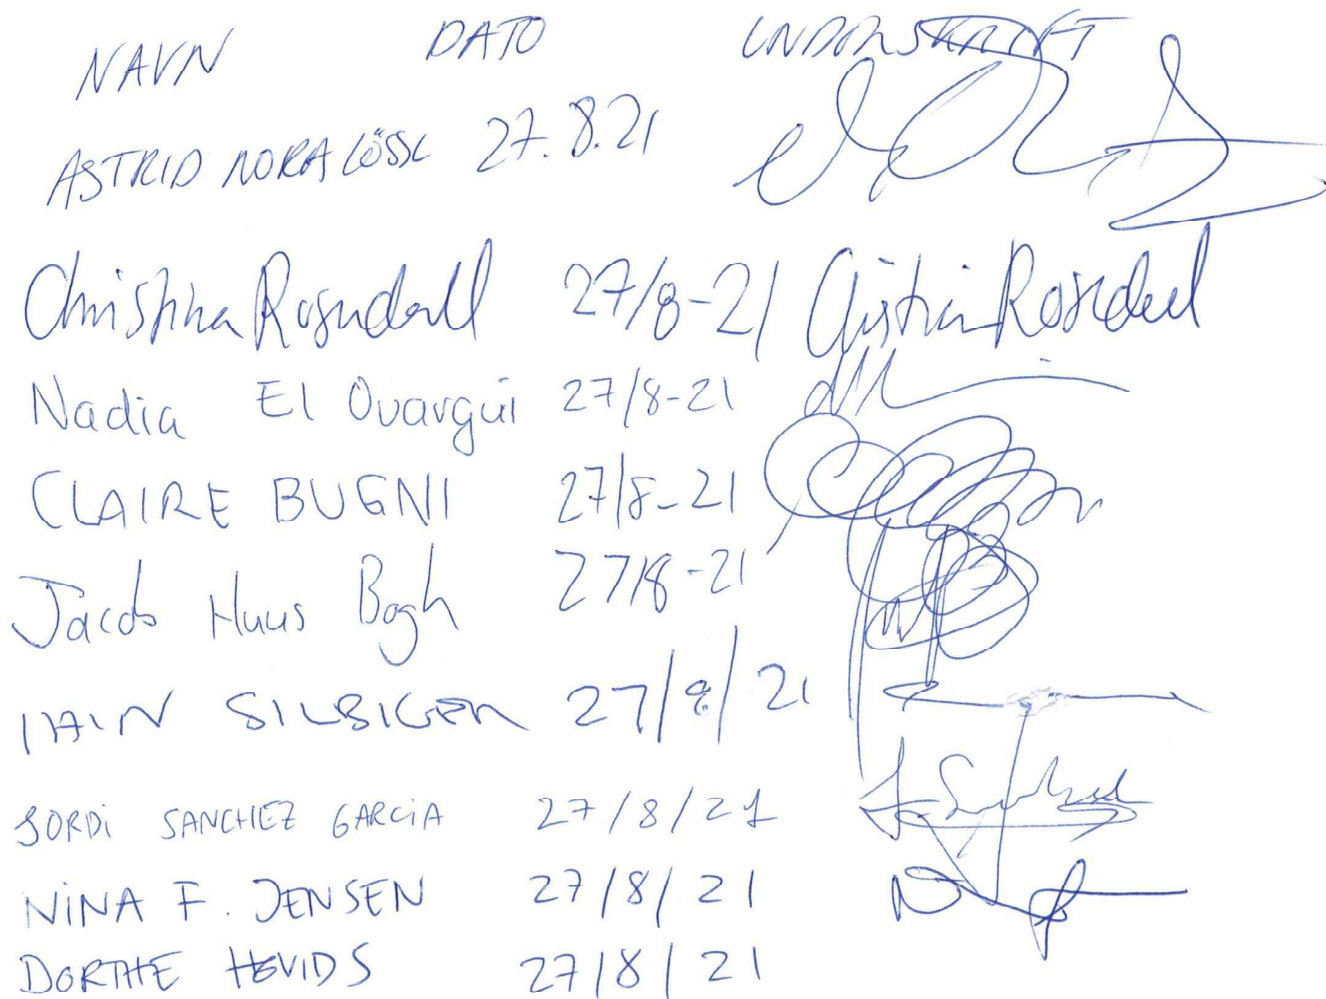 NAVN DATO UNDERSKRIFT
ASTRID NORA LÖSSL 27.8.21
Christina Rosendahl 27/8-21 Christina Rosendahl
Nadia El Ouargui 27/8-21
CLAIRE BUGNI 27/8-21
Jacob Huus Bogh 27/8-21
IAIN SILBIGER 27/8/21
JORDI SANCHEZ GARCIA 27/8/21
NINA F. JENSEN 27/8/21
DORTHE 27/8/21